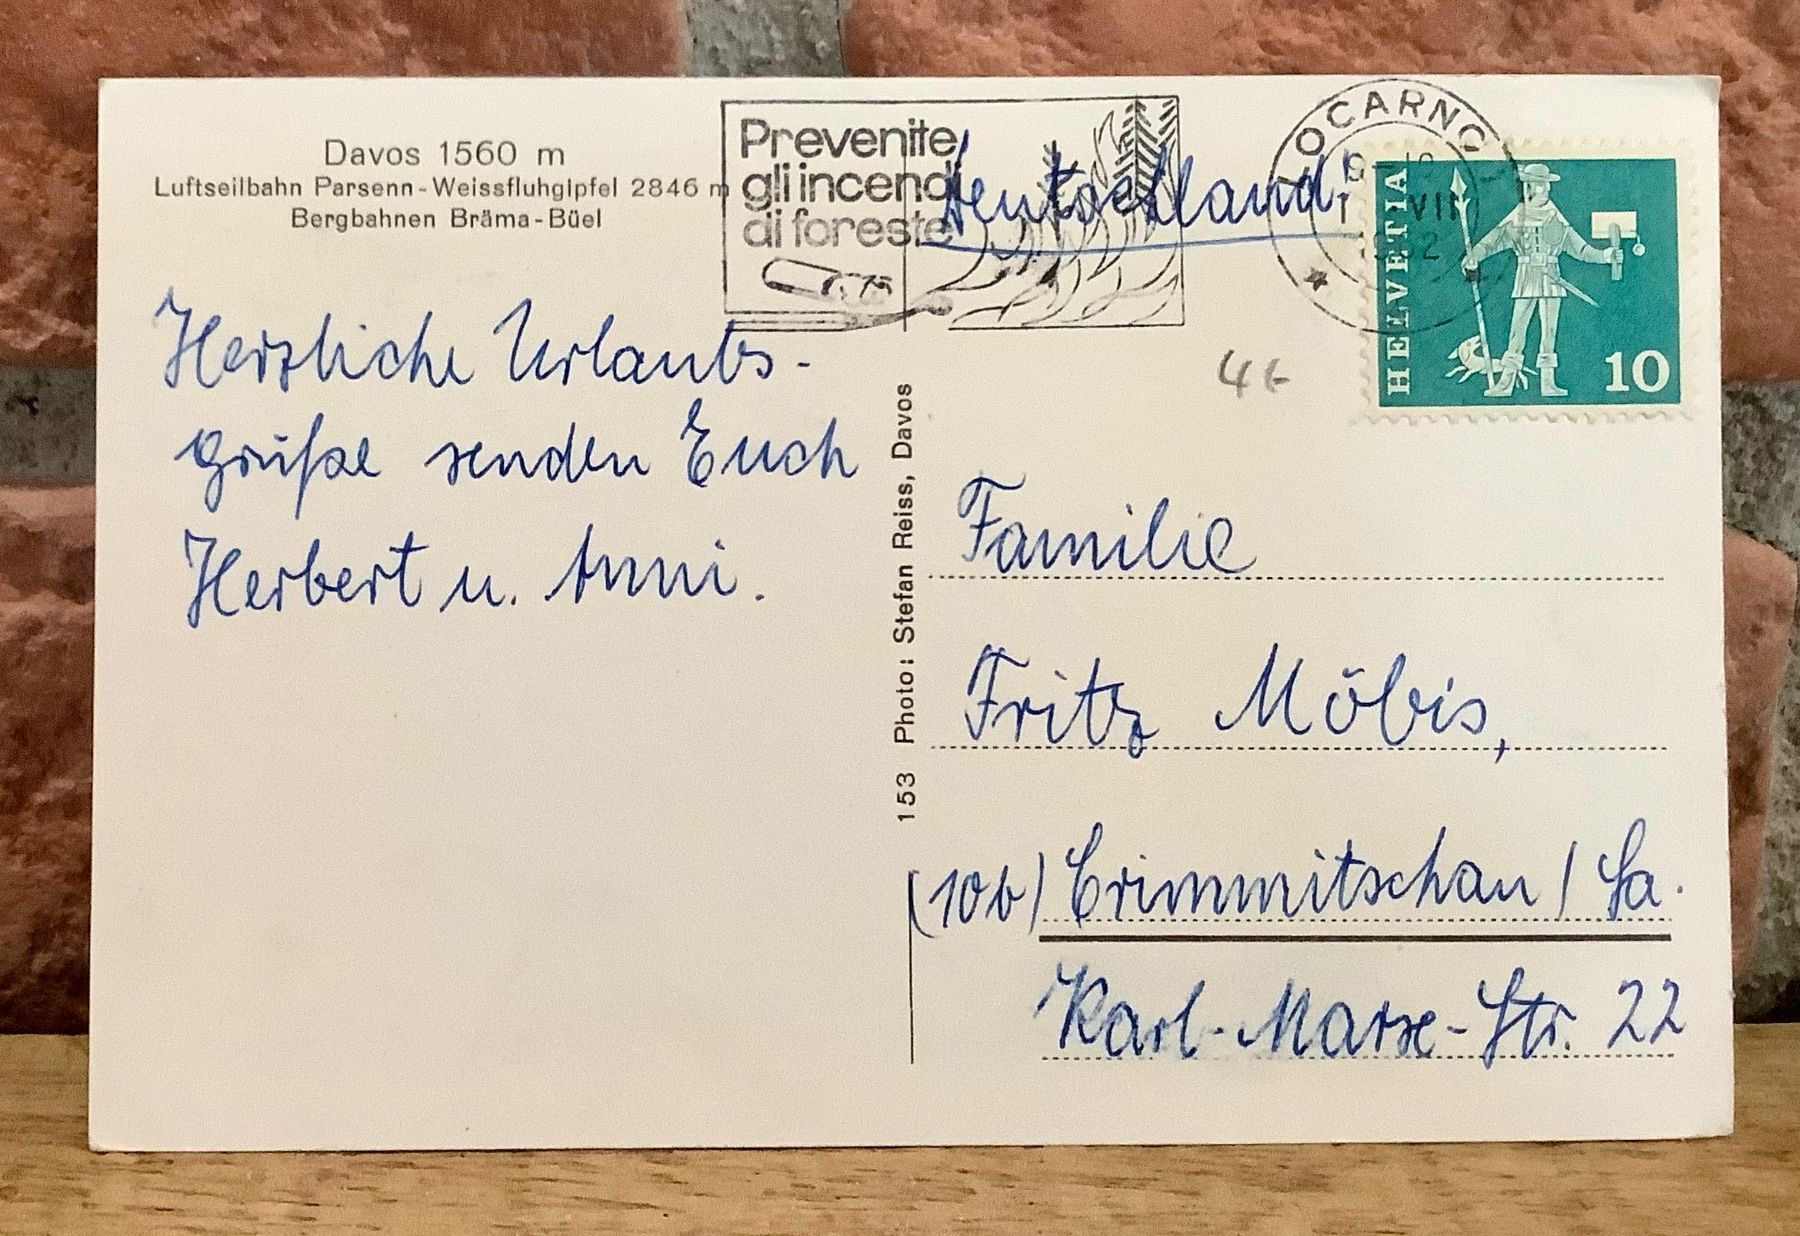 Davos 1560 m
Luftseilbahn Parsenn-Weissfluhgipfel 2846 m
Bergbahnen Bräma-Büel
Prevenite
gli incendi
di foreste
Deutschland.
LOCARNO
VII
HELVETIA
10
Herzliche Urlaubs-
grüße senden Euch
Herbert u. Anni.
153 Photo: Stefan Reiss, Davos
Familie
Fritz Möbis,
(10b) Crimmitschau / Sa.
Karl-Marx-Str. 22